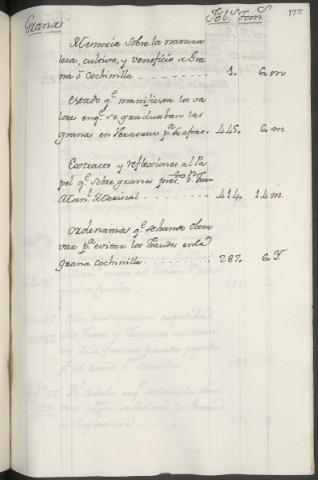 Grana
Fol.s Tom.s
177.
Memoria sobre la natura
leza, cultivo, y veneficio de Gra
na ó Cochinilla 1. 6. m
Estado q.e manifiesta los va
lores en q.e se graduaban las
granas en Veracruz p.a su aforo. 445. 6. m.
Extracto y reflexiones al Pa
pel q.e sobre granas pres.to D.n Fran.
Man.l Mariscal 414. 14 m.
Ordenanzas q.e se han de obser
var p.a evitar los fraudes en la
grana cochinilla 287. 6. T.